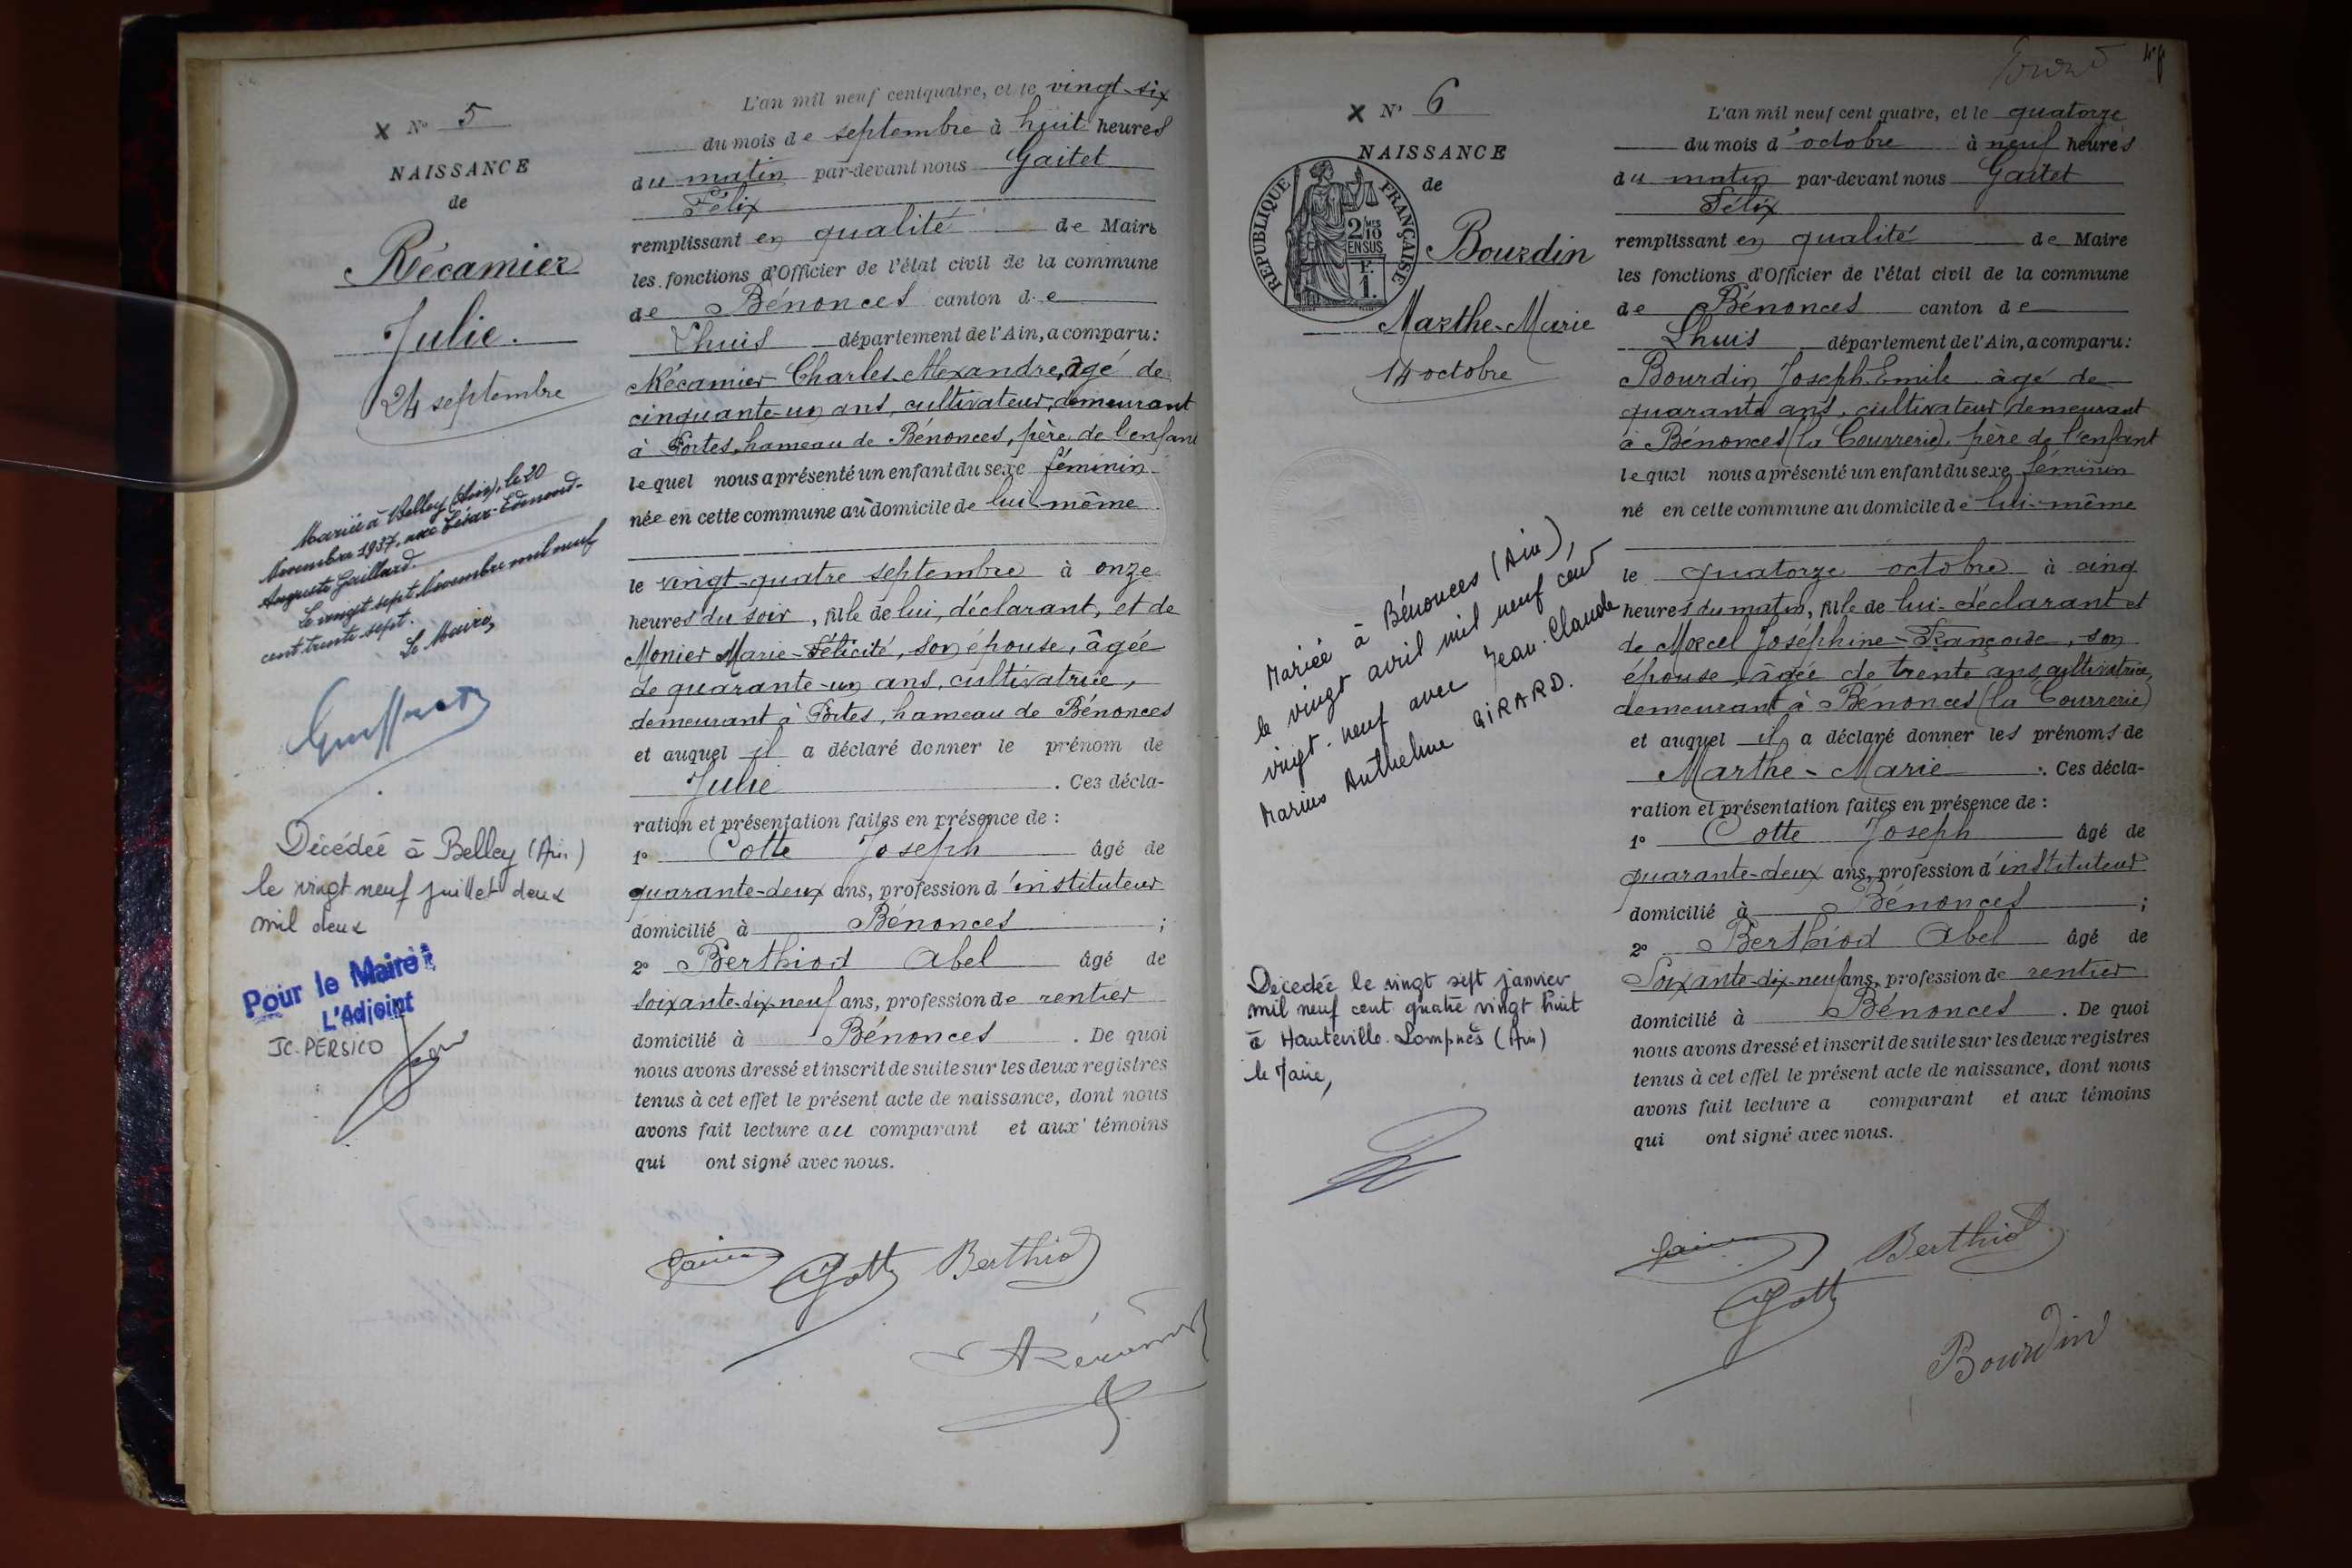 X N° 5
NAISSANCE
de
Récamier
Julie.
24 septembre
Mariée à Belley (Ain), le 20
Novembre 1937, avec César-Edmond-
Auguste Gaillard.
Le vingt sept Novembre mil neuf
cent trente sept.
Le Maire,
Décédée à Belley (Ain)
le vingt neuf juillet deux
mil deux
Pour le Maire
L'Adjoint
JC. PERSICO
L'an mil neuf cent quatre, et le vingt-six
du mois de septembre à huit heures
du matin par-devant nous Gaitet
Félix
remplissant en qualité de Maire
les fonctions d'Officier de l'état civil de la commune
de Bénonces canton de
Lhuis département de l'Ain, a comparu:
Récamier Charles-Alexandre, âgé de
cinquante-un ans, cultivateur, demeurant
à Portes, hameau de Bénonces, père de l'enfant
lequel nous a présenté un enfant du sexe féminin
née en cette commune au domicile de lui-même
le vingt-quatre septembre à onze
heures du soir, fille de lui, déclarant, et de
Monier Marie-Félicité, son épouse, âgée
de quarante-un ans, cultivatrice,
demeurant à Portes, hameau de Bénonces
et auquel il a déclaré donner le prénom de
Julie. Ces décla-
ration et présentation faites en présence de :
1° Cotte Joseph âgé de
quarante-deux ans, profession d'instituteur
domicilié à Bénonces ;
2° Berthiod Abel âgé de
soixante-dix-neuf ans, profession de rentier
domicilié à Bénonces. De quoi
nous avons dressé et inscrit de suite sur les deux registres
tenus à cet effet le présent acte de naissance, dont nous
avons fait lecture au comparant et aux témoins
qui ont signé avec nous.
Cotte Berthiod
X N° 6
NAISSANCE
de
REPUBLIQUE FRANÇAISE
2/10 MES
EN SUS
F.
1.
Bourdin
Marthe-Marie
14 octobre
Mariée à Bénonces (Ain),
le vingt avril mil neuf cent
vingt-neuf avec Jean-Claude
Marius Anthelme GIRARD.
Décédée le vingt sept janvier
mil neuf cent quatre vingt huit
à Hauteville-Lompnès (Ain)
le Maire,
L'an mil neuf cent quatre, et le quatorze
du mois d'octobre à neuf heures
du matin par-devant nous Gaitet
Félix
remplissant en qualité de Maire
les fonctions d'Officier de l'état civil de la commune
de Bénonces canton de
Lhuis département de l'Ain, a comparu:
Bourdin Joseph-Emile âgé de
quarante ans, cultivateur demeurant
à Bénonces (la Courrerie), père de l'enfant
lequel nous a présenté un enfant du sexe féminin
né en cette commune au domicile de lui-même
le quatorze octobre à cinq
heures du matin, fille de lui-déclarant et
de Morcel Joséphine-Françoise, son
épouse, âgée de trente ans, cultivatrice,
demeurant à Bénonces (la Courrerie)
et auquel il a déclaré donner les prénoms de
Marthe-Marie. Ces décla-
ration et présentation faites en présence de :
1° Cotte Joseph âgé de
quarante-deux ans, profession d'instituteur
domicilié à Bénonces ;
2° Berthiod Abel âgé de
Soixante-dix-neuf ans, profession de rentier
domicilié à Bénonces. De quoi
nous avons dressé et inscrit de suite sur les deux registres
tenus à cet effet le présent acte de naissance, dont nous
avons fait lecture a comparant et aux témoins
qui ont signé avec nous.
Berthiod
Cotte
Bourdin